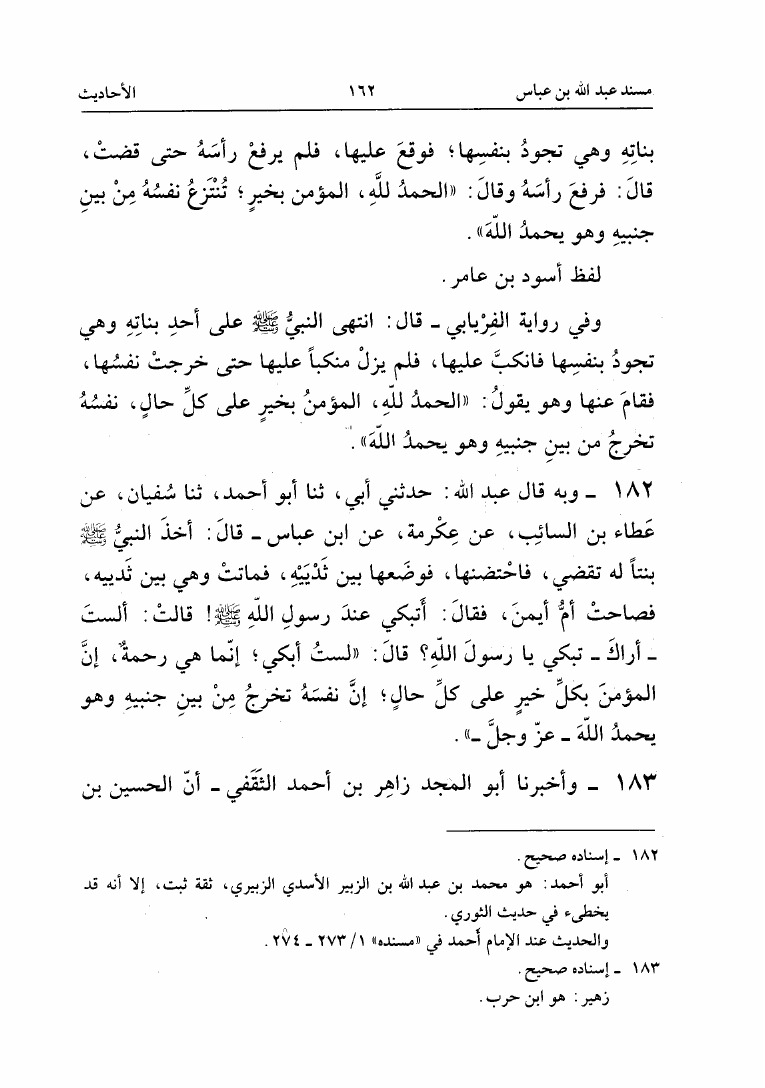 مسند عبد الله بن عباس ١٦٢ الأحاديث
بناتِهِ وهي تجودُ بنفسِها؛ فوقعَ عليها، فلم يرفعْ رأسَهُ حتى قضتْ،
قالَ: فرفعَ رأسَهُ وقالَ: «الحمدُ للَّهِ، المؤمن بخيرٍ؛ تُنْتَزعُ نفسُهُ مِنْ بينِ
جنبيهِ وهو يحمدُ اللَّهَ».
لفظ أسود بن عامر.
وفي رواية الفِرْيابي ـ قال: انتهى النبيُّ ﷺ على أحدِ بناتِهِ وهي
تجودُ بنفسِها فانكبَّ عليها، فلم يزلْ منكباً عليها حتى خرجتْ نفسُها،
فقامَ عنها وهو يقولُ: «الحمدُ للّهِ، المؤمنُ بخيرٍ على كلِّ حالٍ، نفسُهُ
تخرجُ من بينِ جنبيهِ وهو يحمدُ اللّهَ».
١٨٢ ـ وبه قال عبد الله: حدثني أبي، ثنا أبو أحمد، ثنا سُفيان، عن
عَطاء بن السائِب، عن عِكْرمة، عن ابن عباس ـ قالَ: أخذَ النبيُّ ﷺ
بنتاً له تقضي، فاحْتضنها، فوضَعها بين ثَدْيَيْهِ، فماتتْ وهي بين ثَدييه،
فصاحتْ أمُّ أيمنَ، فقالَ: أَتبكي عندَ رسولِ اللّهِ ﷺ! قالتْ: ألستَ
ـ أراكَ ـ تبكي يا رسولَ اللّهِ؟ قالَ: «لستُ أبكي؛ إنّما هي رحمةٌ، إنَّ
المؤمنَ بكلِّ خيرٍ على كلِّ حالٍ؛ إنَّ نفسَهُ تخرجُ مِنْ بينِ جنبيهِ وهو
يحمدُ اللّهَ ـ عزّ وجلَّ ـ».
١٨٣ ـ وأخبرنا أبو المجد زاهِر بن أحمد الثَقَفي ـ أنّ الحسين بن
١٨٢ ـ إسناده صحيح.
أبو أحمد: هو محمد بن عبد الله بن الزبير الأسدي الزبيري، ثقة ثبت، إلا أنه قد
يخطىء في حديث الثوري.
والحديث عند الإمام أحمد في «مسنده» ١/ ٢٧٣ ـ ٢٧٤.
١٨٣ ـ إسناده صحيح.
زهير: هو ابن حرب.